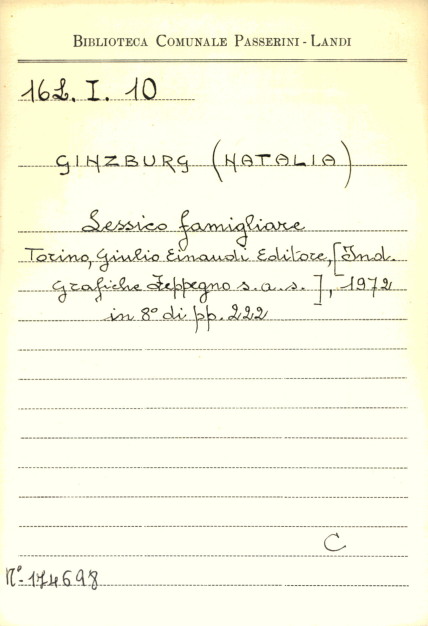 BIBLIOTECA COMUNALE PASSERINI - LANDI
16L. I. 10
GINZBURG (NATALIA)
Lessico famigliare
Torino, Giulio Einaudi Editore, [Ind.
Grafiche Zeppegno s.a.s.], 1972
in 8° di pp. 222
C
N°. 174698